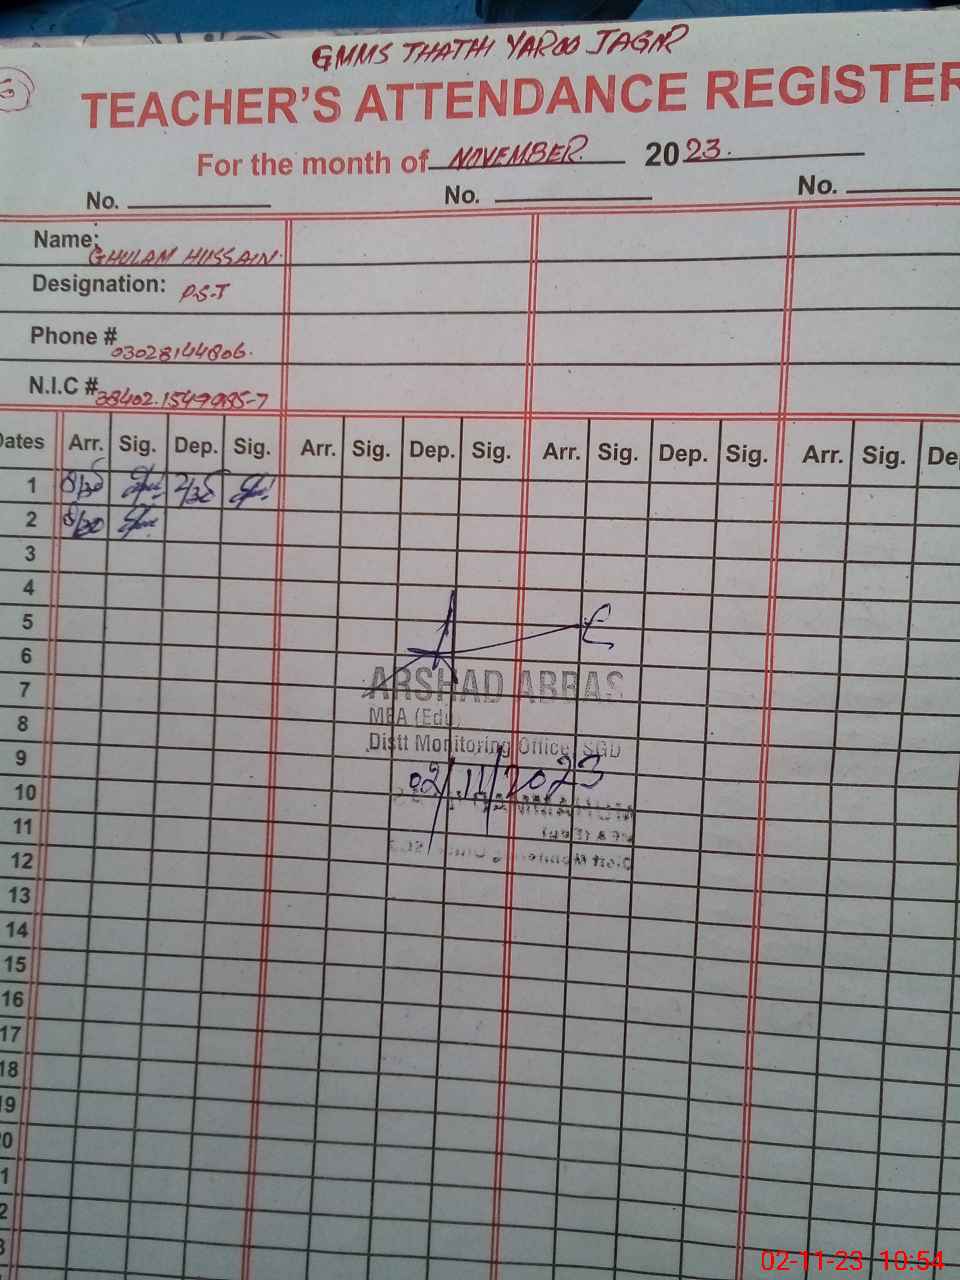 GMMS THATHI YAROO JAGIR
TEACHER'S ATTENDANCE REGISTER
For the month of NOVEMBER. 2023.
No. No. No.
Name: GHULAM HUSSAIN.
Designation: P.S.T
Phone # 03028144806.
N.I.C #
Dates Arr. Sig. Dep. Sig. Arr. Sig. Dep. Sig. Arr. Sig. Dep. Sig. Arr. Sig. De
1 8/30 2/35
2 8/30
3
4
5
6
7
ARSHAD ABBAS
8
MEA (Edu)
Distt Monitoring Office, SGD
9
02/11/2023
10
11
12
13
14
15
16
17
18
19
20
1
2
3
02-11-23 10:54